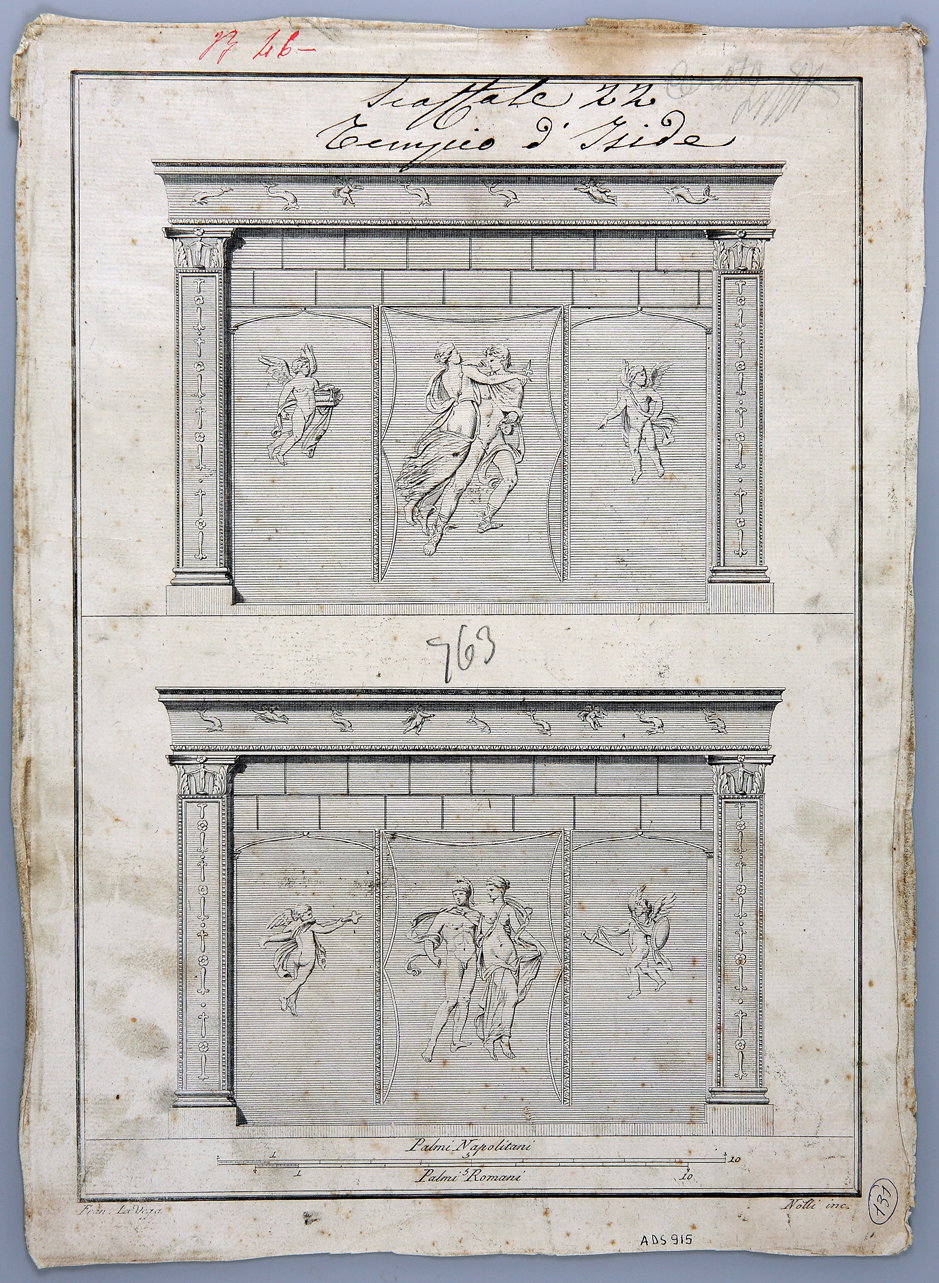 46-
Scaffale 22
Tempio d' Iside
763
Palmi Napolitani
1 5 10
1 5 10
Palmi Romani
Fran. La Vega
Nolli inc.
131
ADS 915